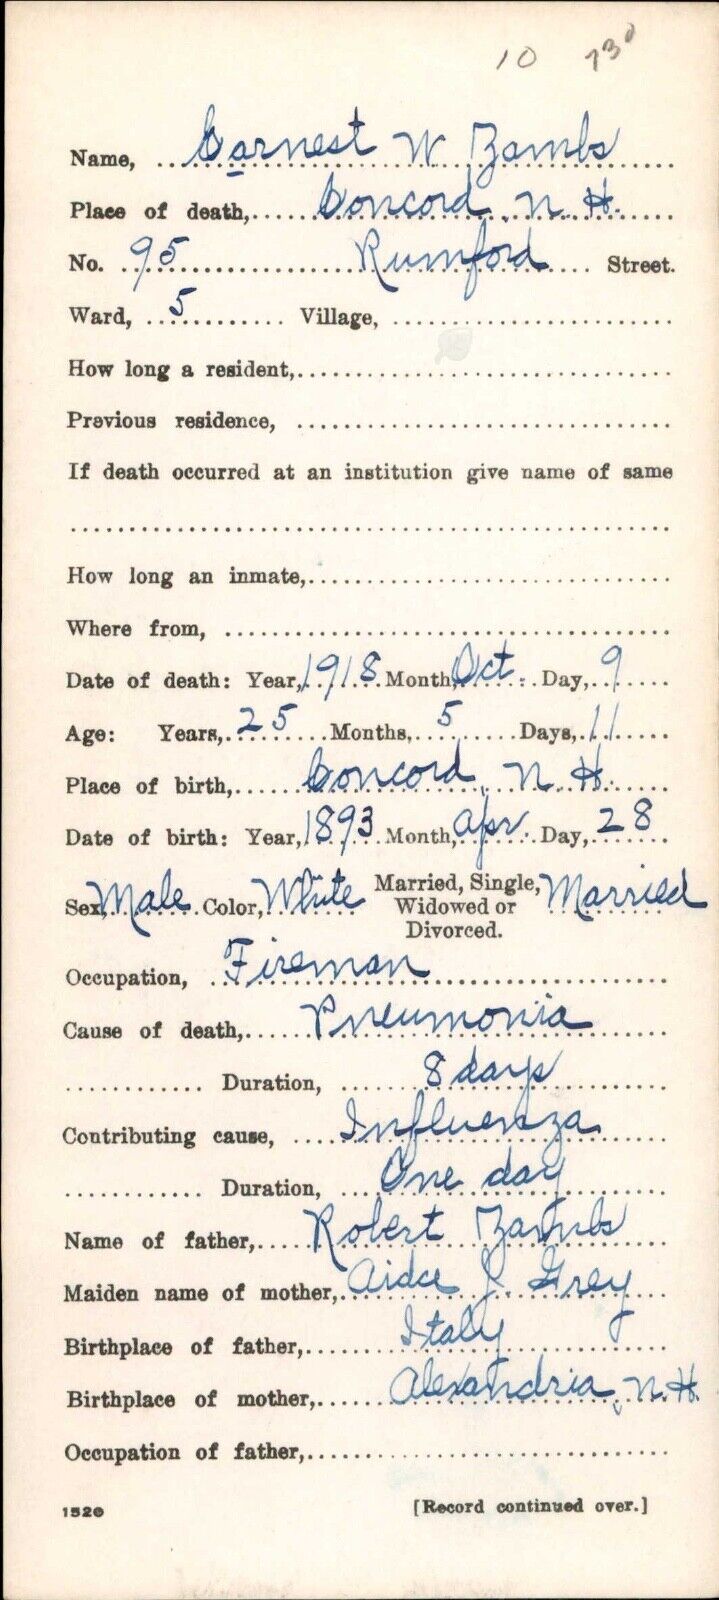 10 730
Name, Earnest W Zambs
Place of death, Concord, N. H.
No. 95 Rumford Street.
Ward, 5 Village,
How long a resident,
Previous residence,
If death occurred at an institution give name of same
How long an inmate,
Where from,
Date of death: Year, 1918 Month, Oct. Day, 9
Age: Years, 25 Months, 5 Days, 11
Place of birth, Concord, N. H.
Date of birth: Year, 1893 Month, Apr. Day, 28
Sex, Male Color, White Married, Single, Widowed or Divorced. Married
Occupation, Fireman
Cause of death, Pneumonia
Duration, 8 days
Contributing cause, Influenza
Duration, One day
Name of father, Robert Zambs
Maiden name of mother, J. Grey
Birthplace of father, Italy
Birthplace of mother, Alexandria, N. H.
Occupation of father,
1526 [Record continued over.]